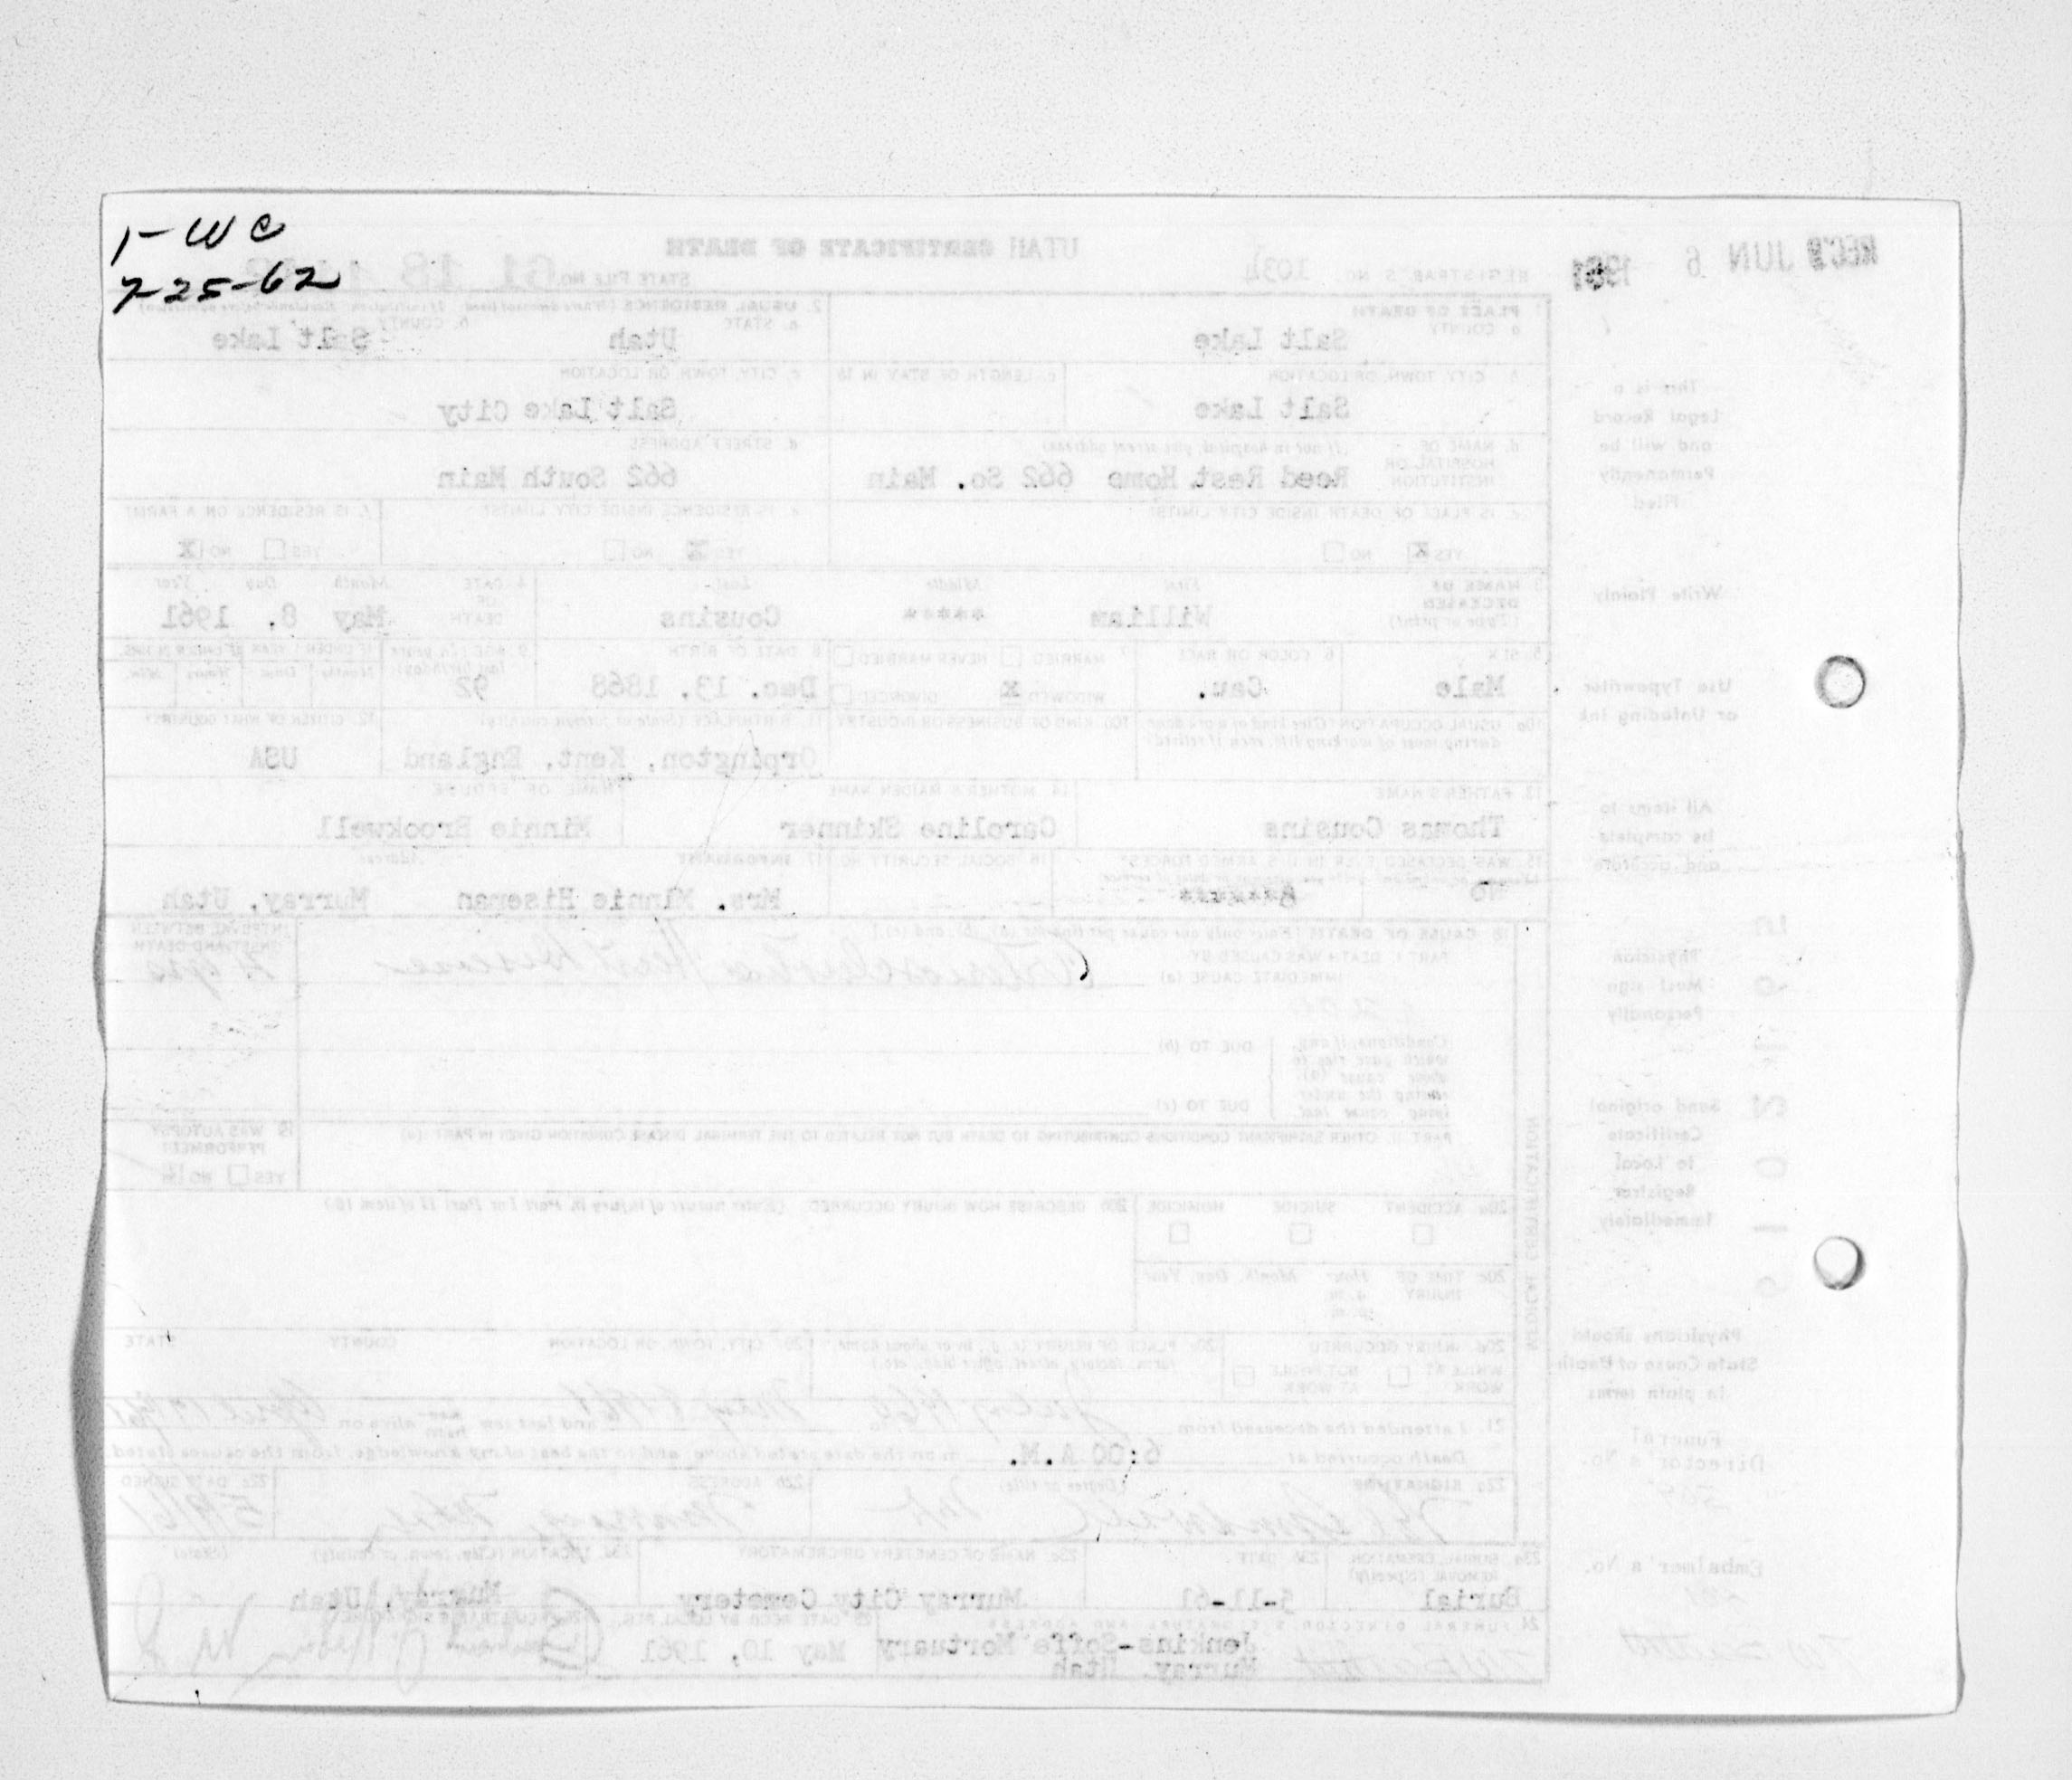 1-WC
7-25-62
REC'D JUN 6 1961
UTAH CERTIFICATE OF DEATH
REGISTRAR'S NO. 1034
STATE FILE NO. 61 18
1. PLACE OF DEATH
a. COUNTY
Salt Lake
2. USUAL RESIDENCE
a. STATE
Utah
b. COUNTY
Salt Lake
b. CITY, TOWN, OR LOCATION
Salt Lake
c. LENGTH OF STAY IN 1b
c. CITY, TOWN, OR LOCATION
Salt Lake City
d. NAME OF HOSPITAL OR INSTITUTION (If not in hospital, give street address)
Reed Rest Home 662 So. Main
d. STREET ADDRESS
662 South Main
e. IS PLACE OF DEATH INSIDE CITY LIMITS?
YES X NO
e. IS RESIDENCE INSIDE CITY LIMITS?
YES X NO
f. IS RESIDENCE ON A FARM?
YES NO X
3. NAME OF DECEASED (Type or print)
First Middle Last
William **** Cousins
4. DATE OF DEATH
Month Day Year
May 8, 1961
5. SEX
Male
6. COLOR OR RACE
Cau.
7. MARRIED NEVER MARRIED
WIDOWED X DIVORCED
8. DATE OF BIRTH
Dec. 13, 1868
9. AGE (In years last birthday)
92
IF UNDER 1 YEAR IF UNDER 24 HRS.
Months Days Hours Min.
10a. USUAL OCCUPATION (Give kind of work done during most of working life, even if retired)
10b. KIND OF BUSINESS OR INDUSTRY
11. BIRTHPLACE (State or foreign country)
Orpington, Kent, England
12. CITIZEN OF WHAT COUNTRY
USA
13. FATHER'S NAME
Thomas Cousins
14. MOTHER'S MAIDEN NAME
Caroline Skinner
NAME OF SPOUSE
Minnie Brookwell
15. WAS DECEASED EVER IN U.S. ARMED FORCES?
No
16. SOCIAL SECURITY NO.
17. INFORMANT Address
Mrs. Minnie Hiseman Murray, Utah
18. CAUSE OF DEATH (Enter only one cause per line for (a), (b), and (c).)
PART I. DEATH WAS CAUSED BY:
IMMEDIATE CAUSE (a) Arteriosclerotic Heart Disease
INTERVAL BETWEEN ONSET AND DEATH
yrs
Conditions, if any, which gave rise to above cause (a), stating the underlying cause last
DUE TO (b)
DUE TO (c)
PART II. OTHER SIGNIFICANT CONDITIONS CONTRIBUTING TO DEATH BUT NOT RELATED TO THE TERMINAL DISEASE CONDITION GIVEN IN PART I (a)
19. WAS AUTOPSY PERFORMED?
YES NO
20a. ACCIDENT SUICIDE HOMICIDE
20b. DESCRIBE HOW INJURY OCCURRED. (Enter nature of injury in Part I or Part II of item 18.)
20c. TIME OF INJURY Hour Month, Day, Year
a.m.
p.m.
20d. INJURY OCCURRED
WHILE AT WORK NOT WHILE AT WORK
20e. PLACE OF INJURY (e.g., in or about home, farm, factory, street, office bldg., etc.)
20f. CITY, TOWN, OR LOCATION COUNTY STATE
21. I attended the deceased from July 1960 to May 8 1961 and last saw him alive on April
Death occurred at 6:00 A.M. m on the date stated above; and to the best of my knowledge, from the causes stated.
22a. SIGNATURE (Degree or title)
22b. ADDRESS
Murray, Utah
22c. DATE SIGNED
5/9/61
23a. BURIAL, CREMATION, REMOVAL (Specify)
Burial
23b. DATE
5-11-61
23c. NAME OF CEMETERY OR CREMATORY
Murray City Cemetery
23d. LOCATION (City, town, or county) (State)
Murray, Utah
24. FUNERAL DIRECTOR'S SIGNATURE AND ADDRESS
Jenkins-Soffe Mortuary
Murray, Utah
25. DATE RECD BY LOCAL REG.
May 10, 1961
MEDICAL CERTIFICATION
This is a
Legal Record
and will be
Permanently
Filed
Write Plainly
Use Typewriter
or Unfading Ink
All items to
be complete
and accurate
Physician
Must sign
Personally
Send original
Certificate
to Local
Registrar
Immediately
Physicians should
State Cause of Death
in plain terms
Funeral
Director's No.
Embalmer's No.